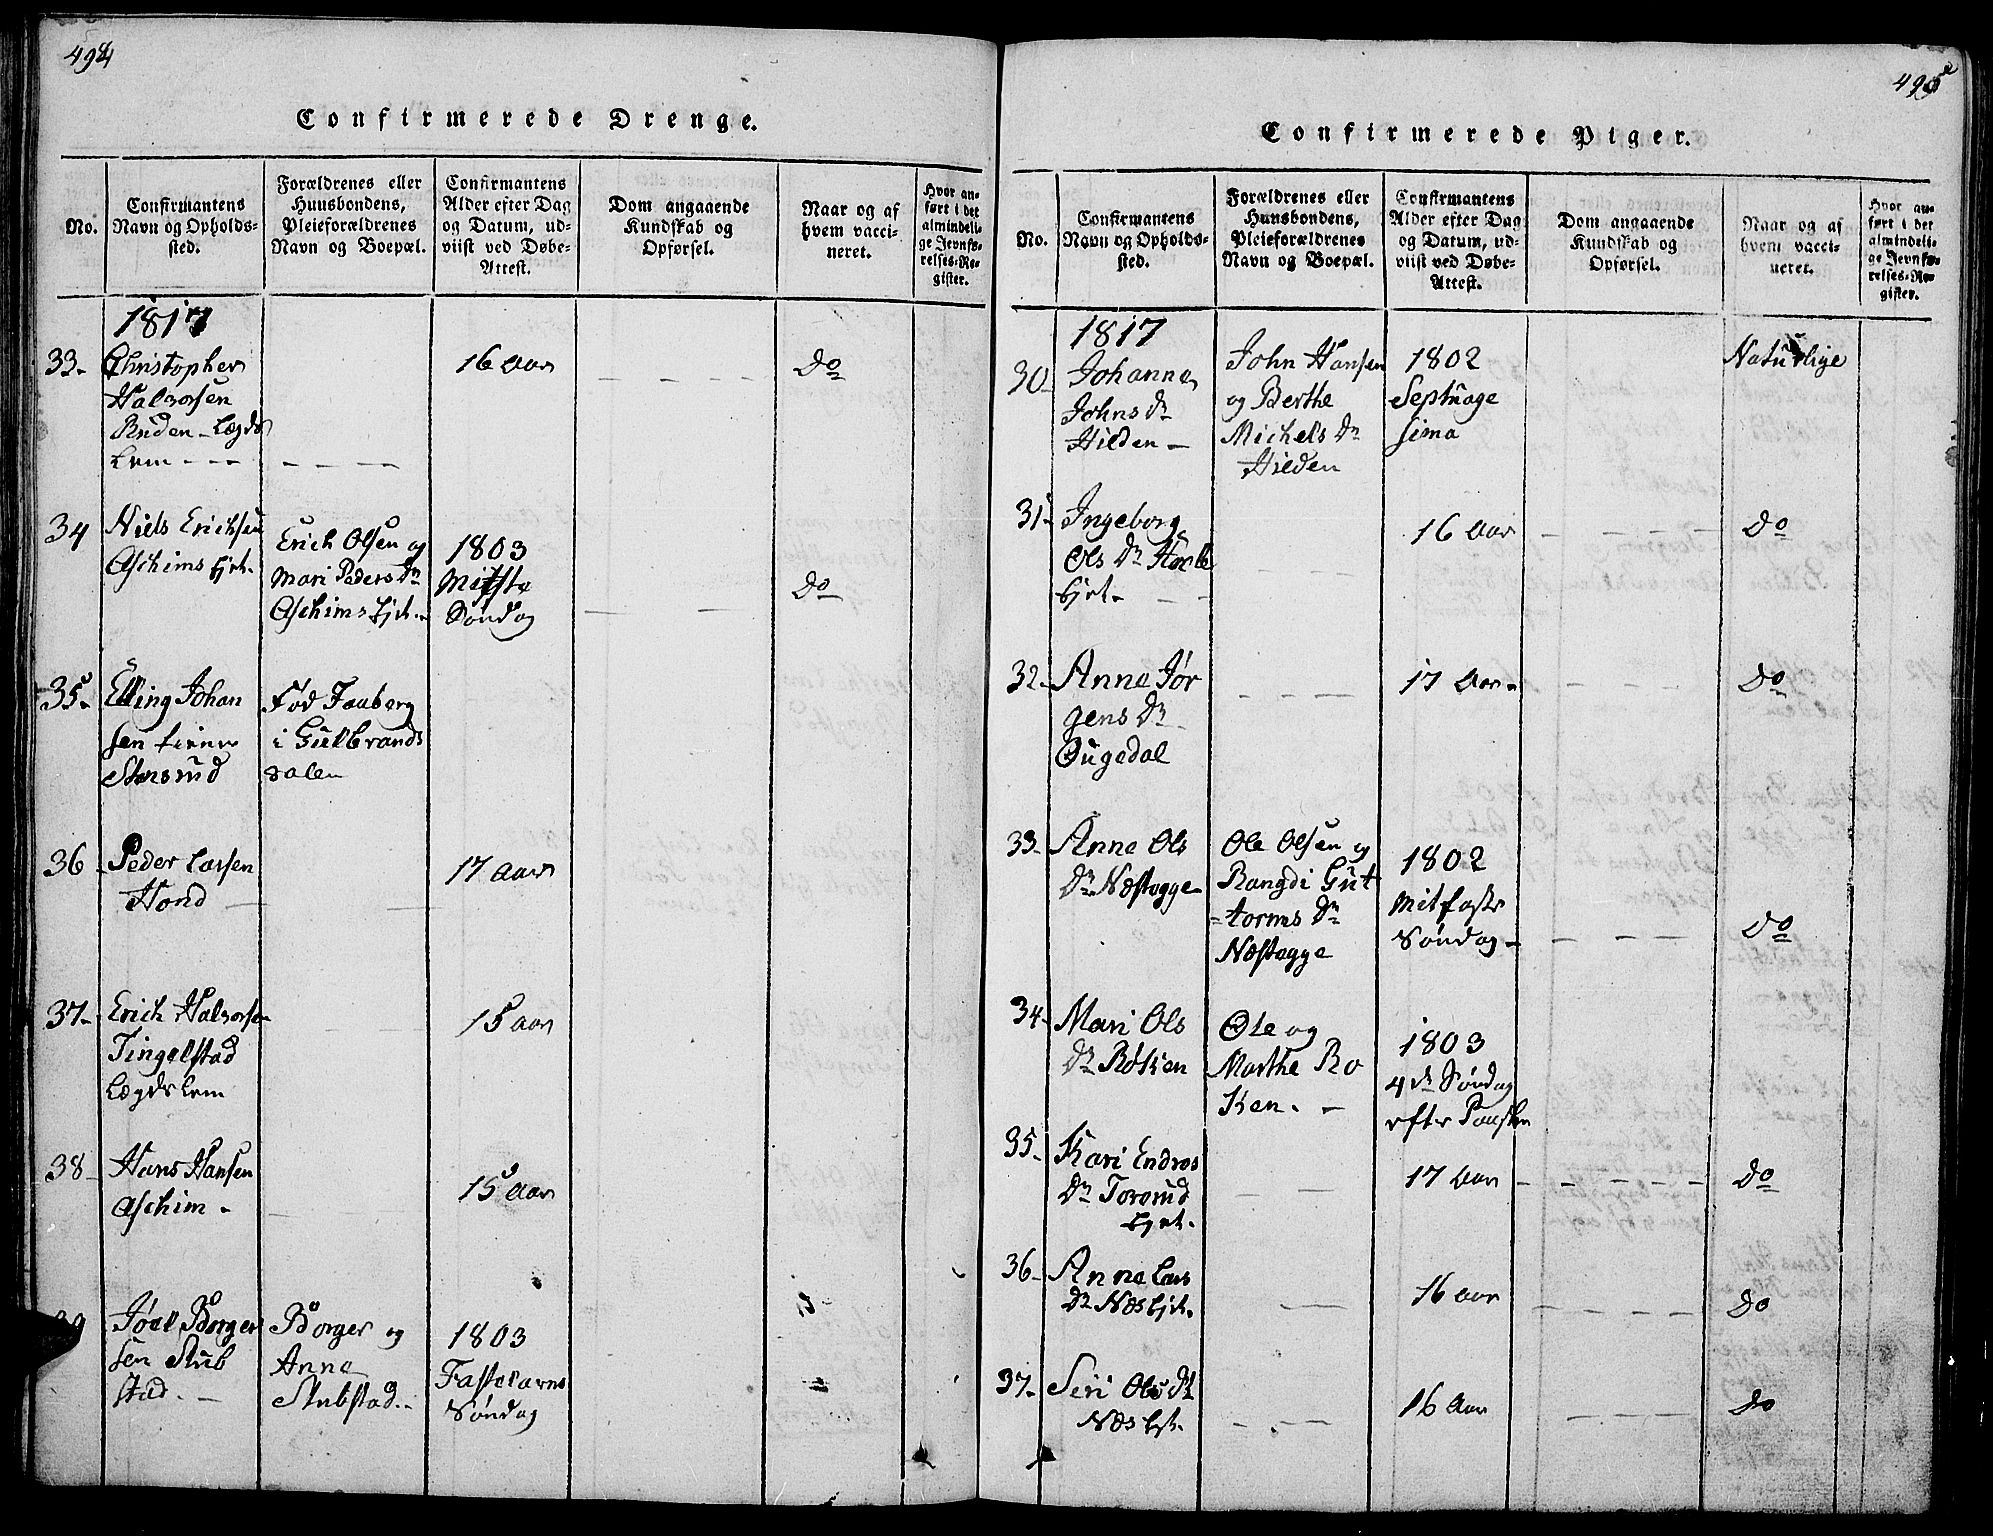 494
Confirmerede Drenge.
No.
Confirmantens
Navn og Opholds-
sted.
Forældrenes eller
Huusbondens,
Pleieforældrenes
Navn og Boepæl.
Confirmantens
Alder efter Dag
og Datum, ud-
viist ved Døbe-
Attest.
Dom angaaende
Kundskab og
Opførsel.
Naar og af
hvem vacci-
neret.
Hvor an-
ført i det
almindeli-
ge Jevnfø-
relses-Re-
gister.
1817
33- Christopher
Halvorsen
Ruden - Lægds
Lem - - -
16 Aar
Do
34 Niels Erichsen
Aschims Ejet.
Erich Olsen og
Mari Peders Dr
Aschims Ejet.
1803
Mitfste
Søndag
Do
35- Elling Johan
sen
Stensrud
Fød Faaberg
i Gulbrands
dalen
36 Peder Larsen
Hond
17 Aar
37- Erich Halvorsen
Tingelstad
Lægdslem
15 Aar
38- Hans Hansen
Aschim -
15 Aar
39 Joel Borger
sen Stub
stad. -
Borger og
Anne
Stubstad.-
1803
Fastelavns
Søndag
495
Confirmerede Piger.
No.
Confirmantens
Navn og Opholds-
sted.
Forældrenes eller
Huusbondens,
Pleieforældrenes
Navn og Boepæl.
Confirmantens
Alder efter Dag
og Datum, ud-
viist ved Døbe-
Attest.
Dom angaaende
Kundskab og
Opførsel.
Naar og af
hvem vacci-
neret.
Hvor an-
ført i det
almindeli-
ge Jevnfø-
relses-Re-
gister.
1817
30- Johanne
Johns Dr
Hilden -
John Hansen
og Berthe
Michels Dr
Hilden
1802
Septuage
sima
Naturlige
31- Ingeborg
Ols Dr
Ejet-
16 Aar
Do
32- Anne Jør
gens Dr
Ougedal
17 Aar-
Do
33- Anne Ols
Dr Næstegge-
Ole Olsen og
Rangdi Gut
=torms Dr
Næstegge
1802
Mitfaste
Søndag -
Do
34- Mari Ols
Dr Røken
Ole og
Marthe Rø
ken. -
1803
4de Søndag
efter Paasken
35- Kari Endres
Dr Torsrud
Ejet.
17 Aar
Do
36- Anne Lars
Dr Næs Ejet.
16 Aar
Do
37- Siri Ols Dr
Næs Ejet.
16 Aar
Do